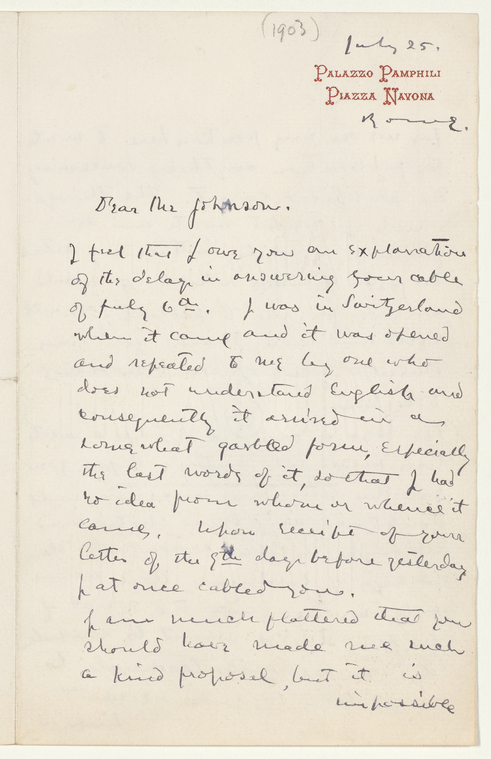 (1903)
July 25.
PALAZZO PAMPHILI
PIAZZA NAVONA
Rome.
Dear Mr Johnson.
I feel that I owe you an explanation
of the delay in answering your cable
of July 6th. I was in Switzerland
when it came and it was opened
and repeated to me by one who
does not understand English and
consequently it arrived in a
somewhat garbled form, especially
the last words of it, so that I had
no idea from whom or whence it
came. Upon receipt of your
letter of the 9th day before yesterday
I at once cabled you.
I am much flattered that you
should have made me such
a kind proposal, but it is
impossible